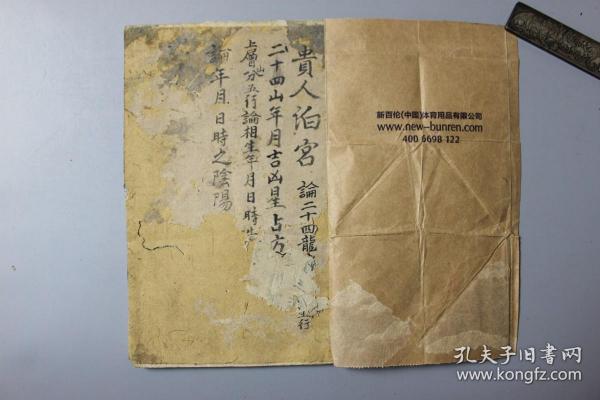 貴人泊宮 論二十四龍
二十四山年月吉凶星占方
上層分山五行論相生年月日時生
論年月日時之陰陽
行
新百伦(中国)体育用品有限公司
www.new-bunren.com
400 6698 122
孔夫子旧书网
www.kongfz.com